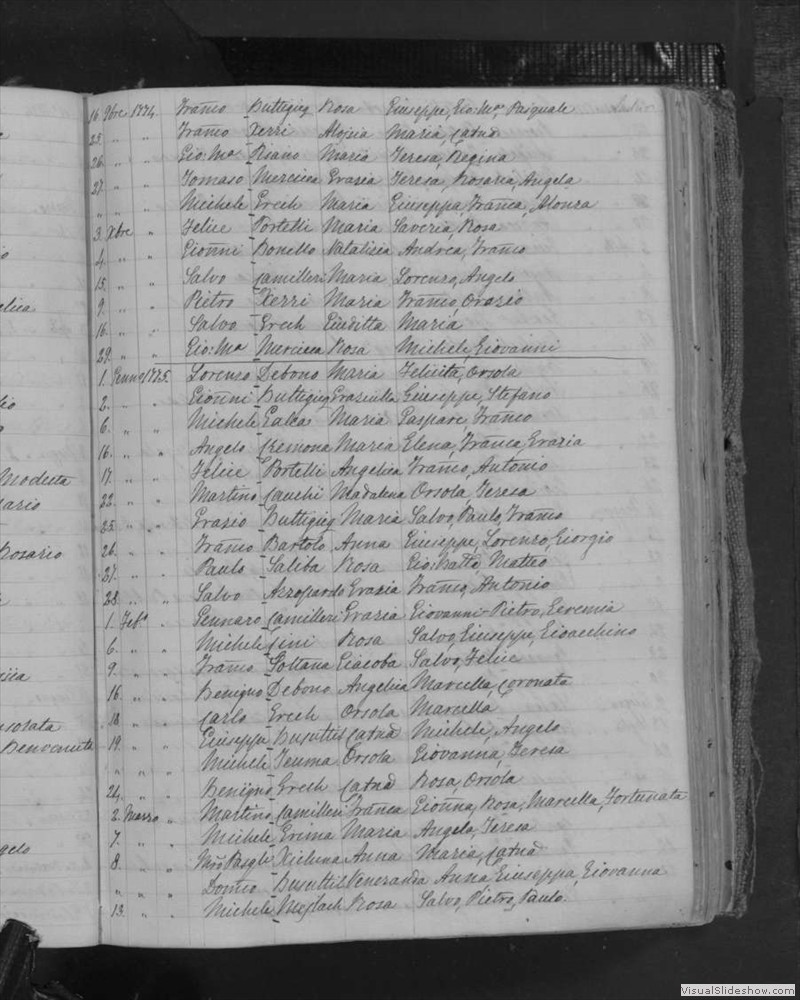 lica
Modesta
Rosario
Benvenuta
gelo
16 9bre 1774 Franco Buttigieg Rosa Giuseppe, Gio: Ma, Pasquale
25 " " Franco Xerri Aloisia Maria, Catna
26 " " Gio: Ma Pisano Maria Teresa, Regina
27 " " Tomaso Mercieca Grazia Teresa, Rosaria, Angela
" " " Michele Grech Maria Giuseppa, Franca, Alonza
3 Xbre " Felice Portelli Maria Saveria, Rosa
4 " " Gionni Bonello Natalicia Andrea, Franco
15 " " Salvo Camilleri Maria Lorenzo, Angelo
9 " " Pietro Xerri Maria Franco, Orazio
16 " " Salvo Grech Giuditta Maria
29 " " Gio: Ma Mercieca Rosa Michele, Giovanni
1 Genno 1775 Lorenzo Debono Maria Felicita, Orsola
2 " " Gionni Buttigieg Graziulla Giuseppe, Stefano
6 " " Michele Galea Maria Gaspare, Franco
16 " " Angelo Cremona Maria Elena, Franca, Grazia
17 " " Felice Portelli Angelica Franco, Antonio
22 " " Martino Cauchi Madalena Orsola, Teresa
25 " " Grazio Buttigieg Maria Salvo, Paulo, Franco
26 " " Franco Bartolo Anna Giuseppe, Lorenzo, Giorgio
27 " " Paulo Saliba Rosa Gio: Batta, Matteo
28 " " Salvo Azzopardo Grazia Franco, Antonio
1 Feb. " Gennaro Camilleri Grazia Giovanni-Pietro, Geremia
6 " " Michele Cini Rosa Salvo, Giuseppe, Gioacchino
9 " " Franco Soltana Giacoba Salvo, Felice
16 " " Benigno Debono Angelica Marcella, Coronata
18 " " Carlo Grech Orsola Marcella
19 " " Giuseppe Busuttil Catna Michele, Angelo
" " " Michele Teuma Orsola Giovanna, Teresa
24 " " Beniigno Grech Catna Rosa, Orsola
2 Marzo " Martino Camilleri Franca Gionna, Rosa, Marcella, Fortunata
7 " " Michele Grima Maria Angela, Teresa
8 " " Xicluna Anna Maria, Catna
" " " Domco Busuttil Veneranda Anna, Giuseppa, Giovanna
13 " " Michele Mejlach Rosa Salvo, Pietro, Paulo.
VisualSlideshow.com